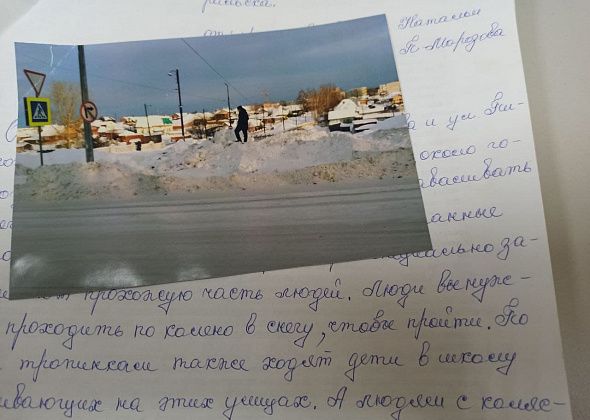 Натальи
П-Морозова
а и ул Пи-
около го-
аваливать
анные
циально за-
ют прохожую часть людей. Люди вынуж-
проходить по колено в снегу, чтобы пройти. По
тропинкам также ходят дети в школу
ивающих на этих улицах. А людям с коляс-